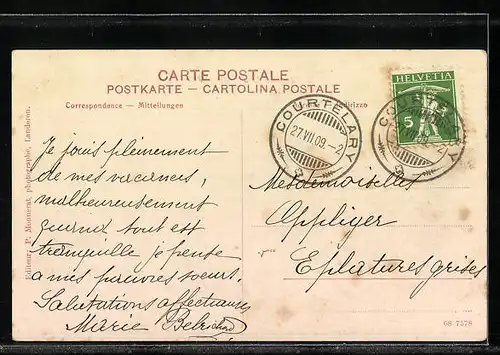 CARTE POSTALE
POSTKARTE — CARTOLINA POSTALE
Correspondance — Mitteilungen
HELVETIA
5
COURTELARY
27 VII 09 - 2
COURTELARY
Je jouis pleinement
de mes vacances,
malheureusement
quand tout est
tranquille je pense
à mes pauvres soeurs.
Salutations affectueuses
Marie
Mesdemoiselles
Oppliger
Eplatures grises
Editeur: P. Monnerat, photographe, Landeron.
08 7579